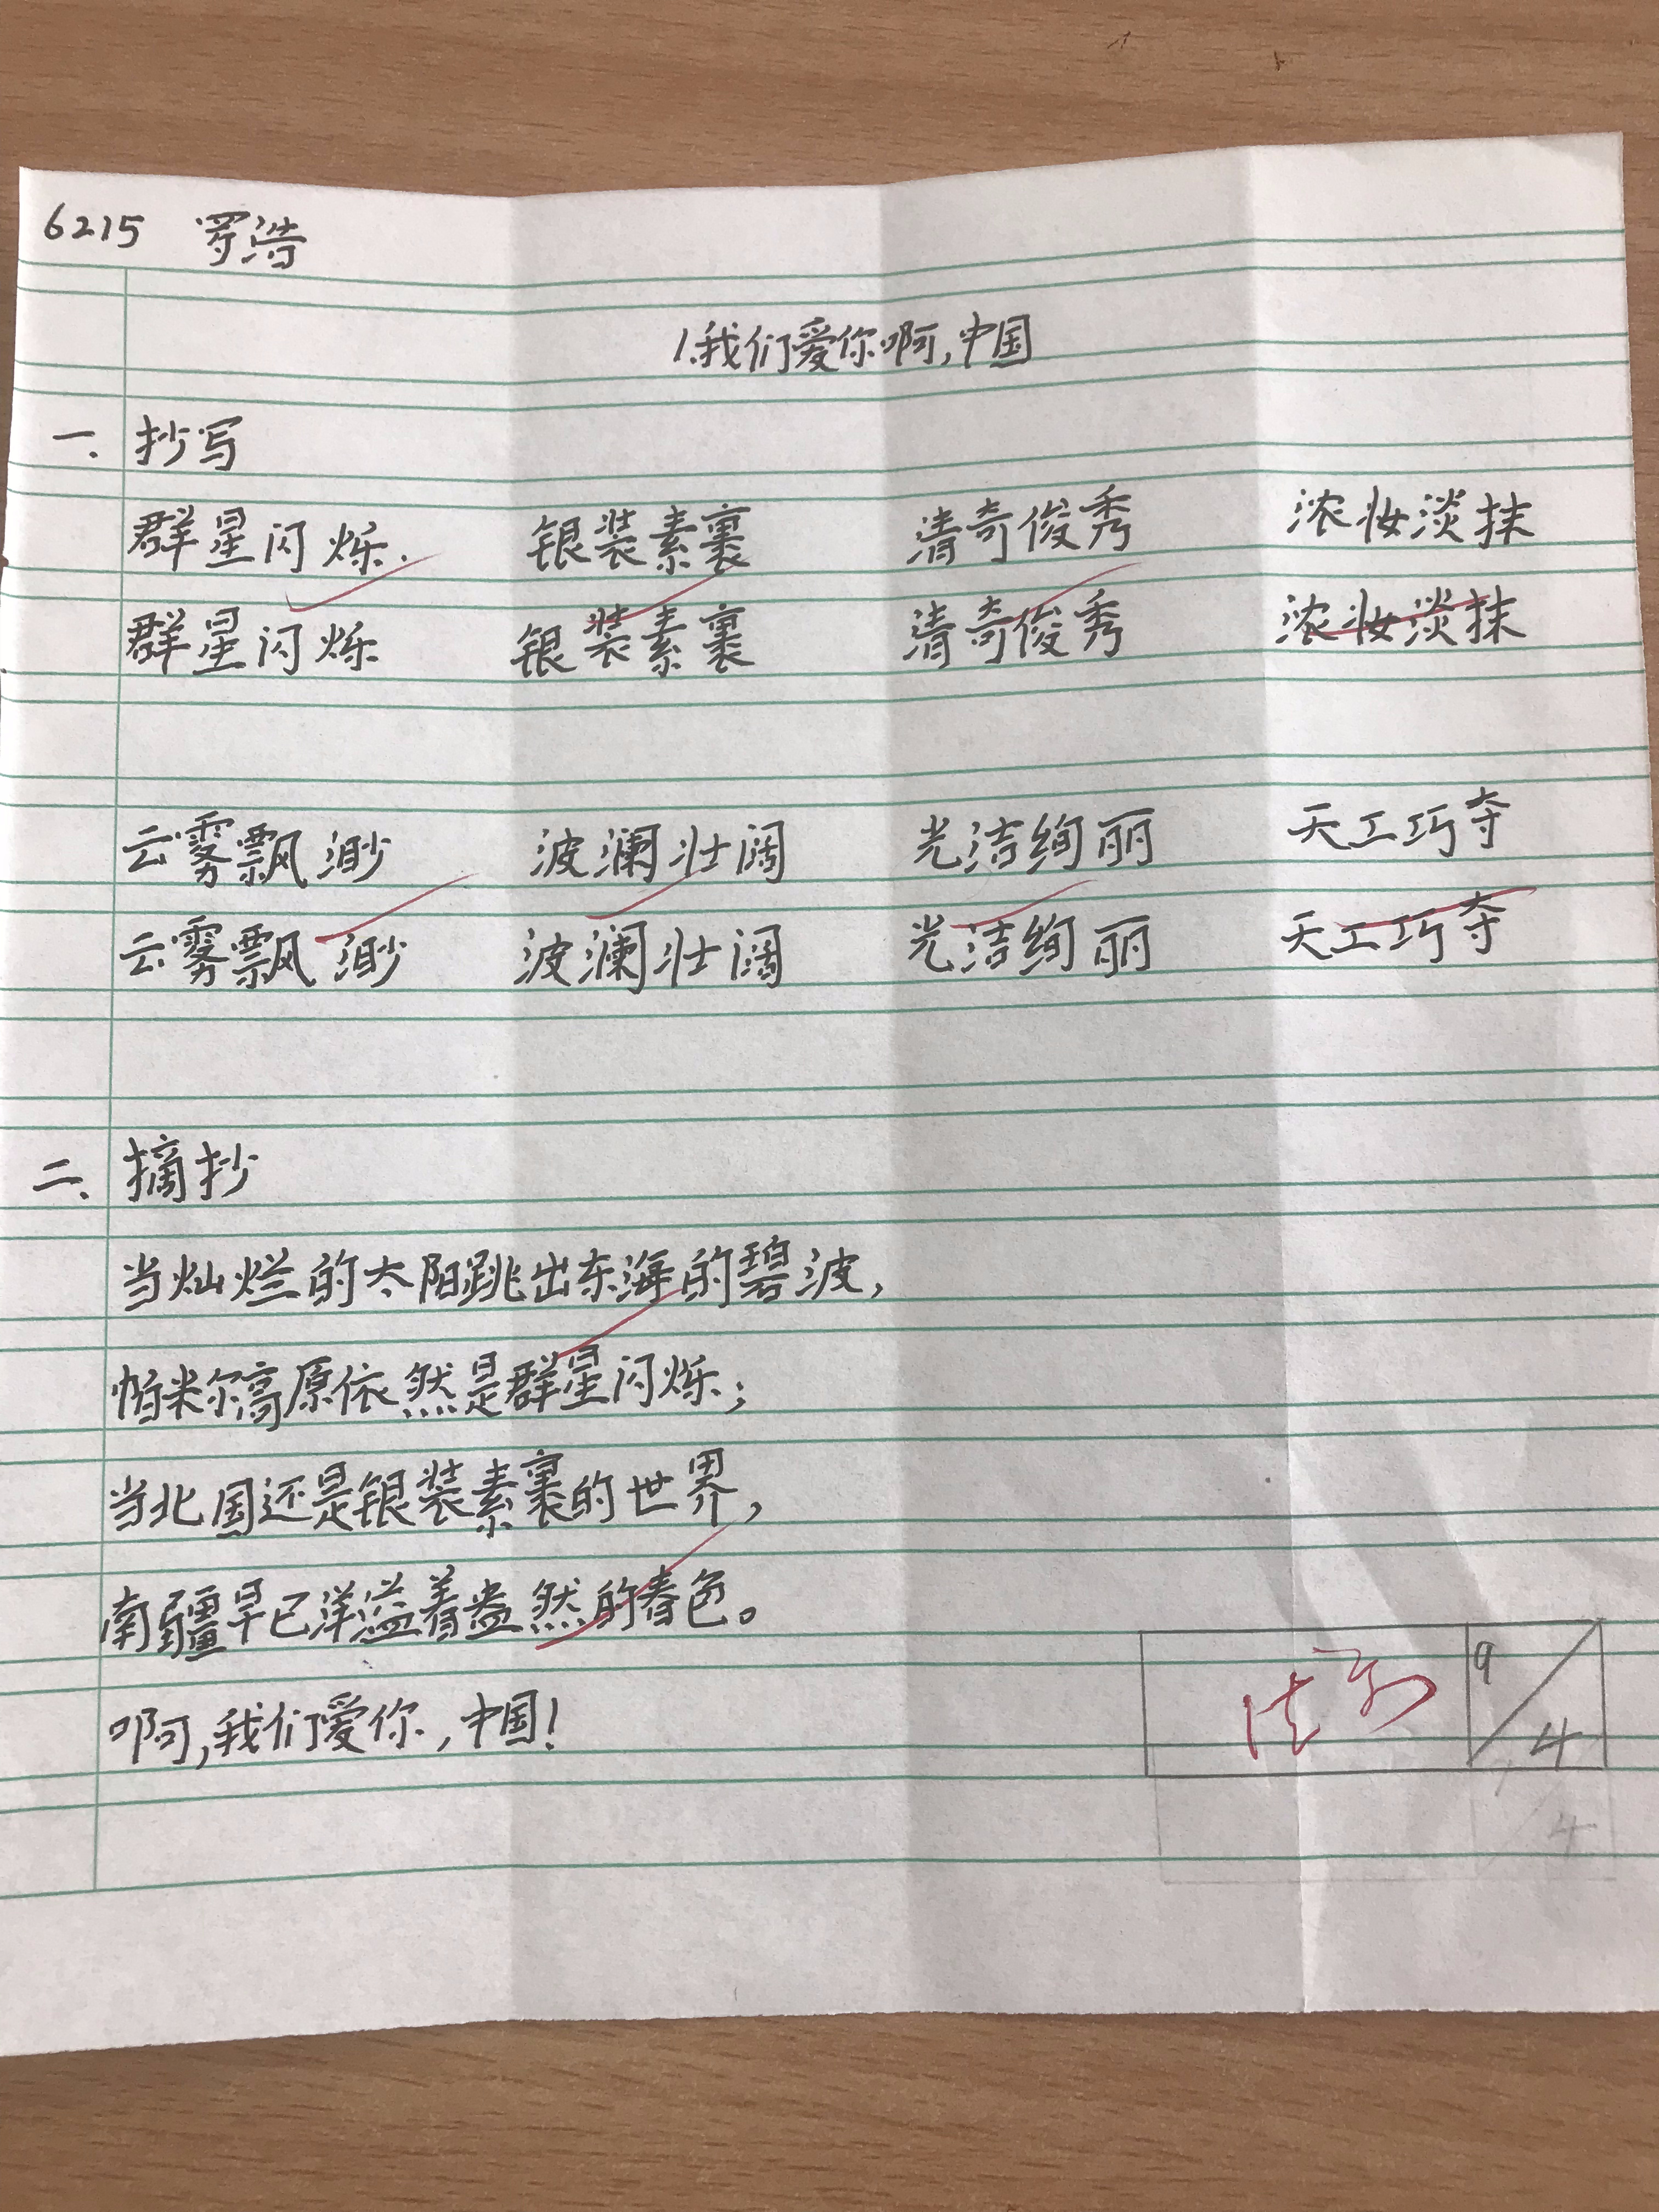 6215 罗浩
1.我们爱你啊,中国
一、抄写
群星闪烁. 银装素裹 清奇俊秀 浓妆淡抹
群星闪烁 银装素裹 清奇俊秀 浓妆淡抹
云雾飘渺 波澜壮阔 光洁绚丽 天工巧夺
云雾飘渺 波澜壮阔 光洁绚丽 天工巧夺
二、摘抄
当灿烂的太阳跳出东海的碧波,
帕米尔高原依然是群星闪烁;
当北国还是银装素裹的世界,
南疆早已洋溢着盎然的春色。
啊,我们爱你,中国!
9/4
/4